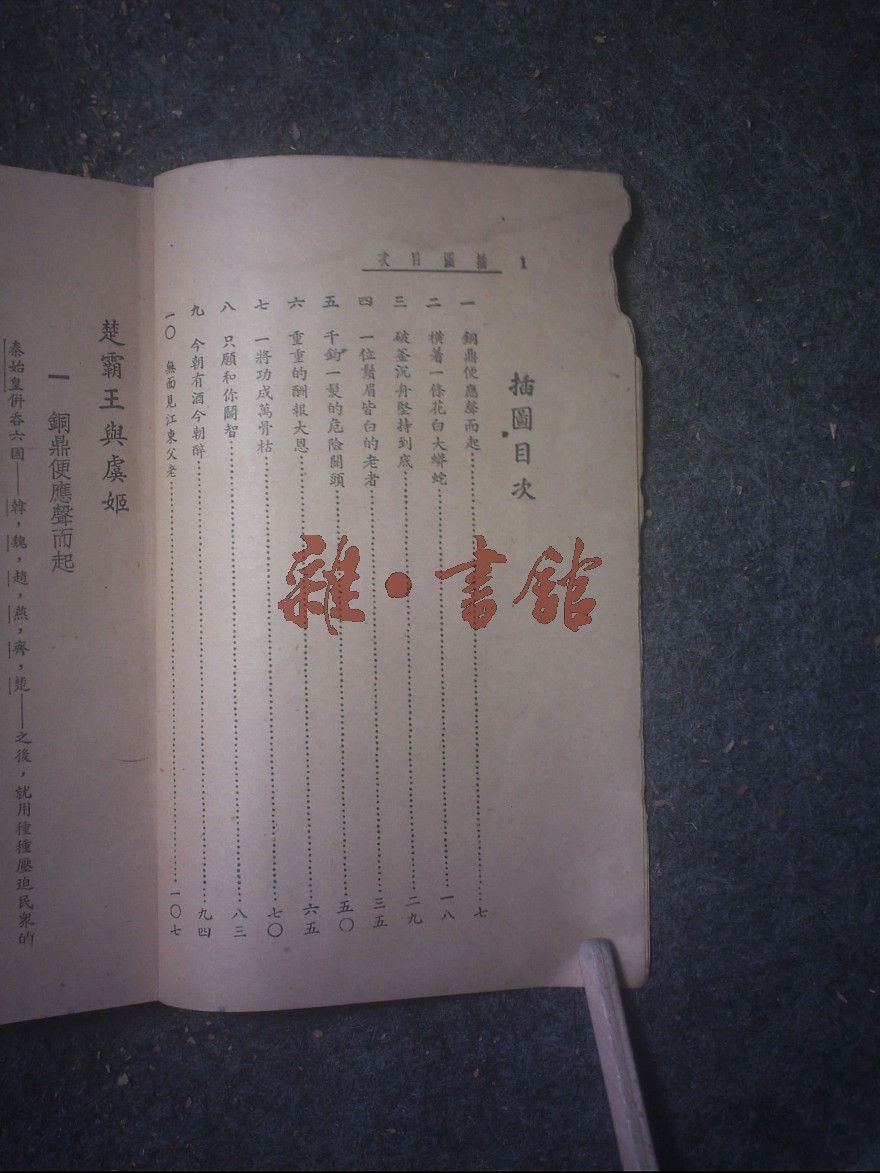 1 插圖目次
插圖目次
一 銅鼎便應聲而起……七
二 橫着一條花白大蟒蛇……一八
三 破釜沉舟堅持到底……二九
四 一位鬚眉皆白的老者……三五
五 千鈞一髮的危險關頭……五〇
六 重重的酬報大恩……六五
七 一將功成萬骨枯……七〇
八 只願和你鬬智……八三
九 今朝有酒今朝醉……九四
一〇 無面見江東父老……一〇七
楚霸王與虞姬
一 銅鼎便應聲而起
秦始皇併吞六國——韓，魏，趙，燕，齊，楚——之後，就用種種壓迫民衆的
雜·書館